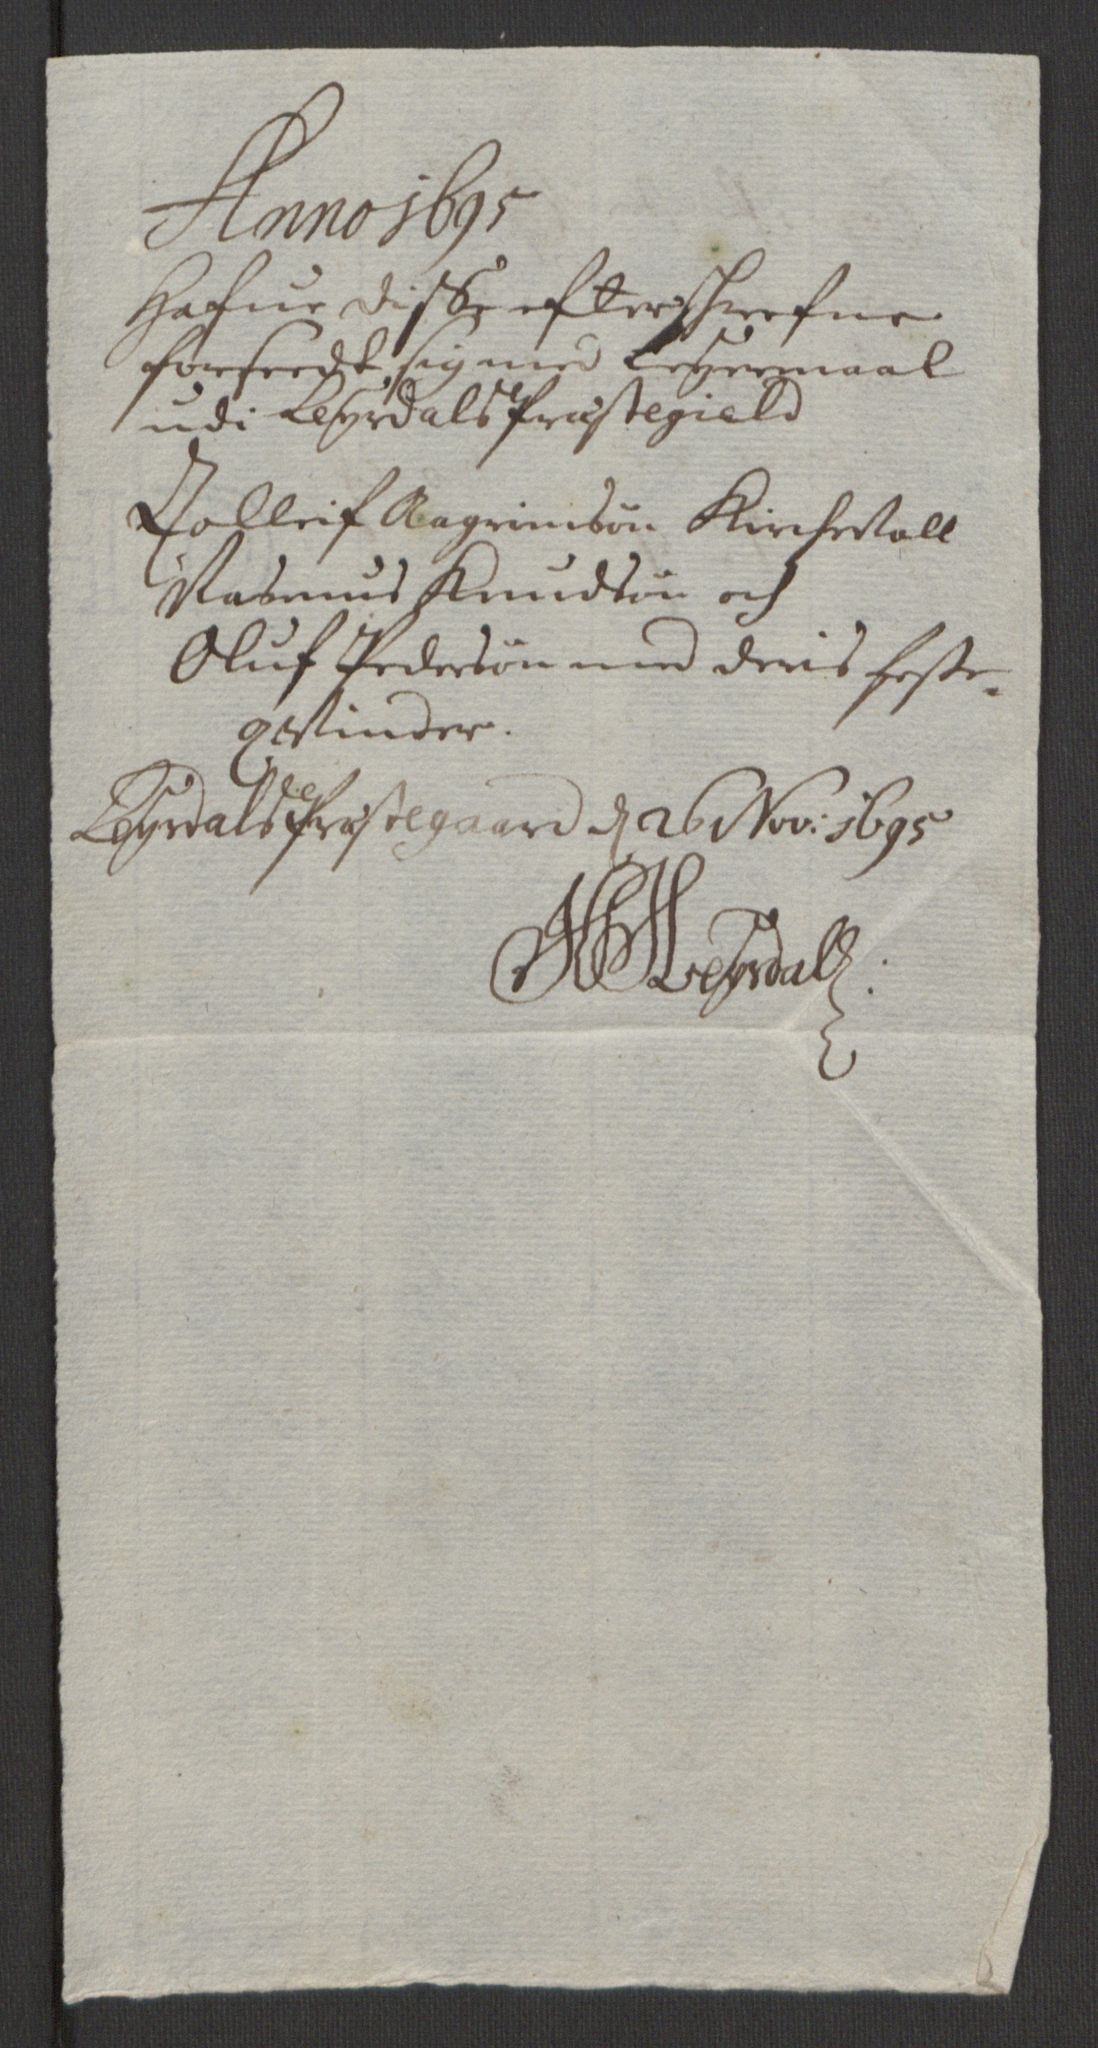 Anno 1695
Hafue disse efterschrefne
forseedt sig med Leyermaal
udi Leyrdals Præstegield
Tolleif Aagrimsøn Kirchevoll
Rasmus Knudsøn och
Oluf Pedersøn med deris feste-
qvinder.
Leyrdals Præstegaard d 26 Nov: 1695
Leyrdall